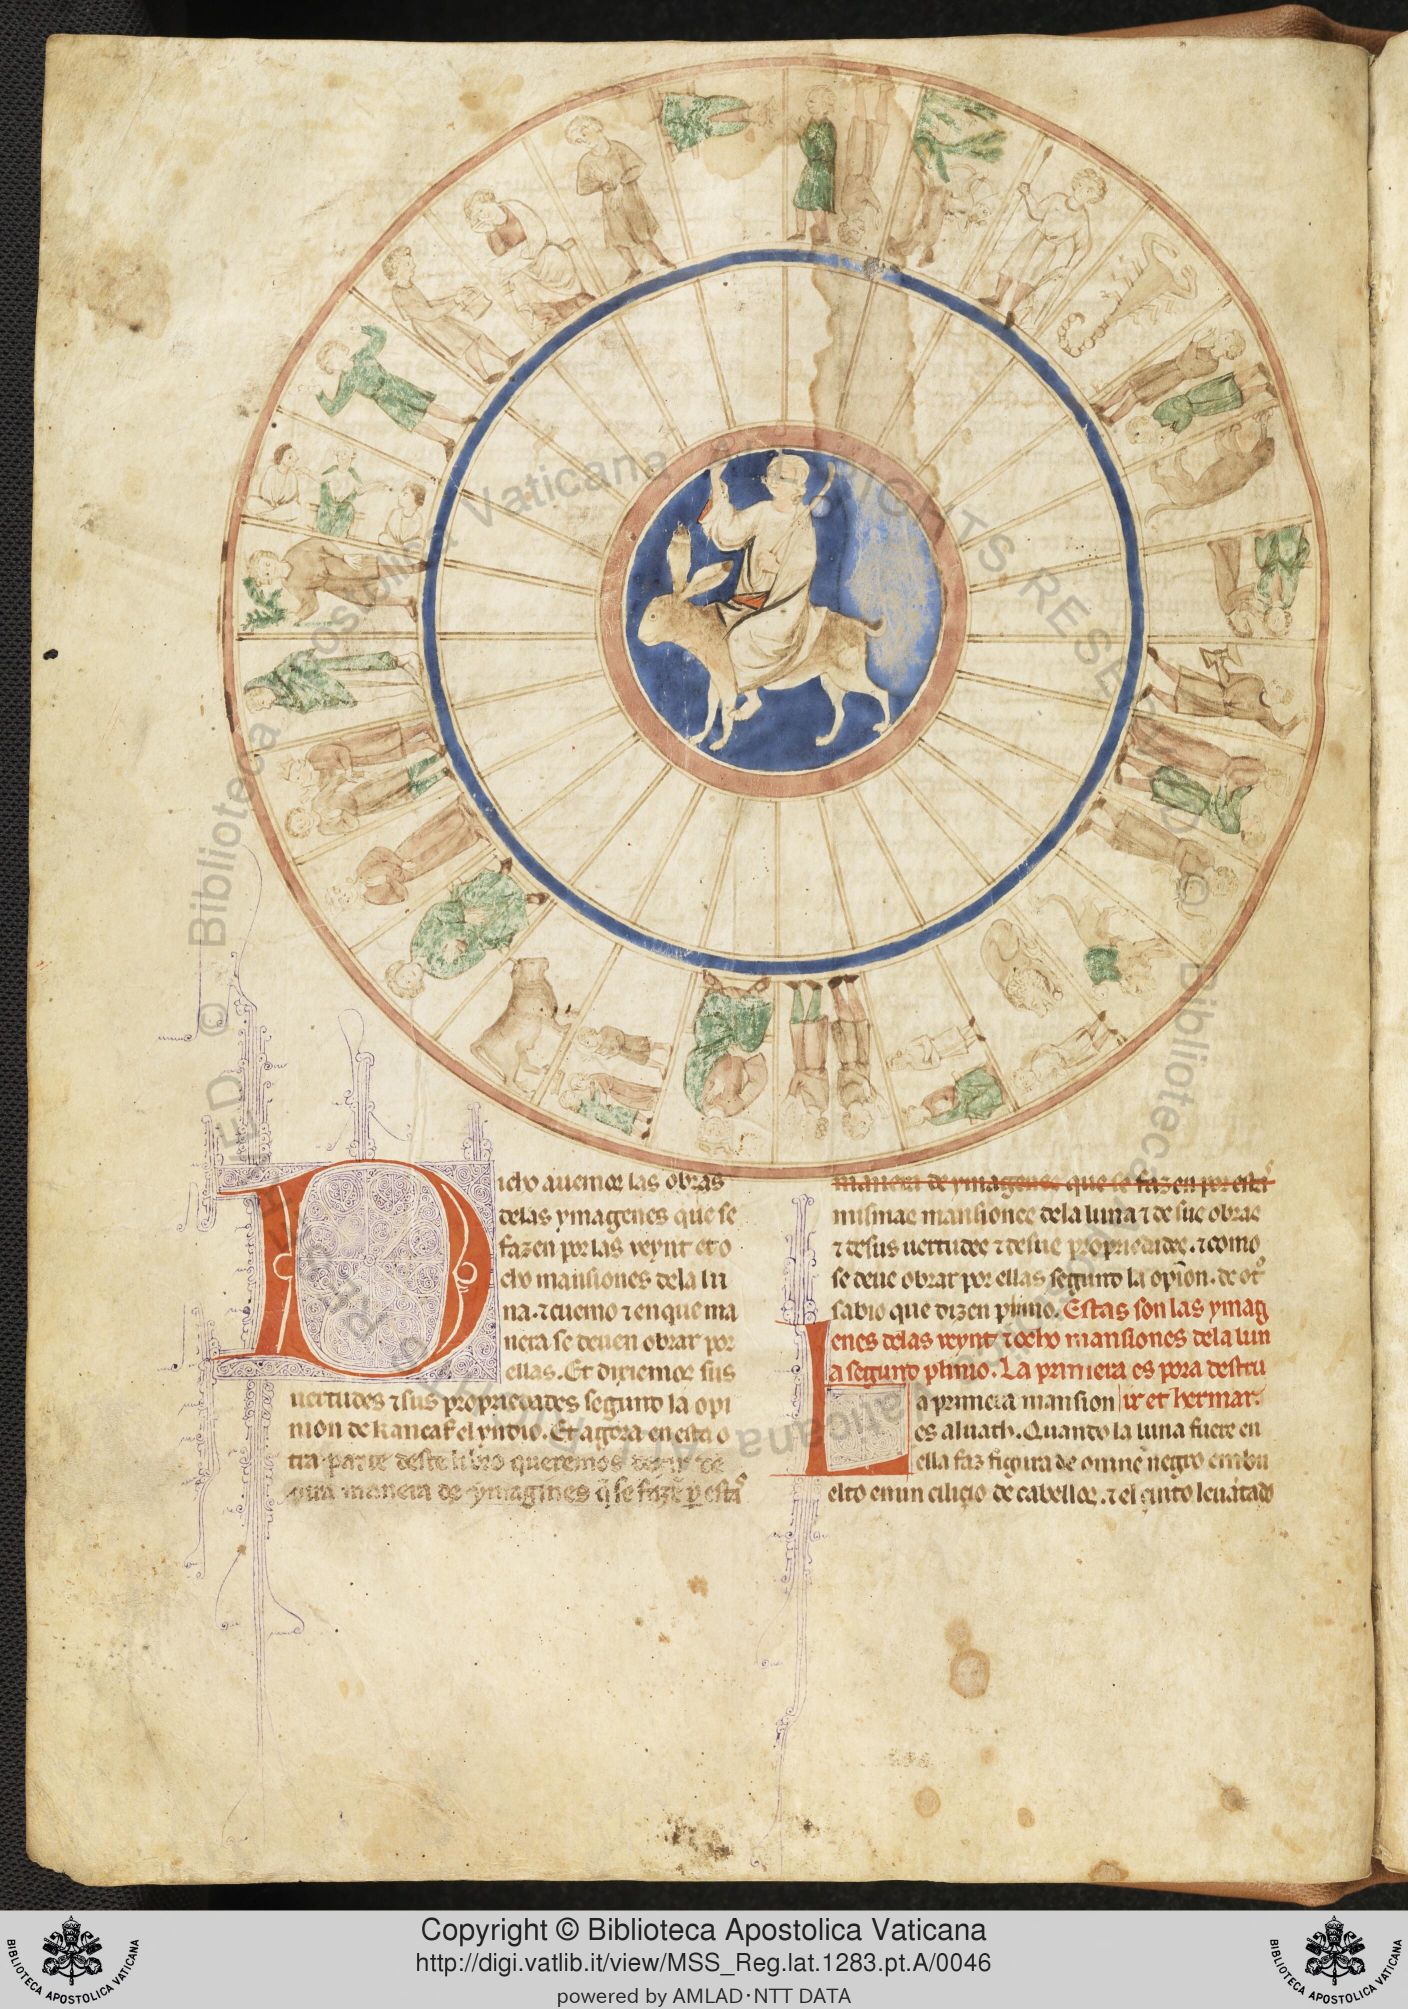 Dicho auemos las obras
delas ymagenes que se
fazen por las veynt et o
cho mansiones dela lu
na. ⁊ cuemo ⁊ en que ma
nera se deuen obrar por
ellas. Et dixiemos sus
uertudes ⁊ sus propriedades segunt la opi
nion de kancaf el yndio. Et agora en esta o
tra parte deste libro queremos dezir de
otra manera de ymagines q̃ se fazẽ ꝑ esta
manera de ymagenes que se fazen por esta
mismas mansiones dela luna ⁊ de sus obras
⁊ desus uertudes ⁊ desus propriedades. ⁊ como
se deue obrar por ellas segunt la opiõn. de ot
sabio que dizen plinio. Estas son las ymag
enes delas veynt ⁊ ocho mansiones dela lun
a segunt plinio. La primera es pora destru
La primera mansion ir et hermar.
es aluath. Quando la luna fuere en
ella faz figura de omne negro enbu
elto en un cilicio de cabellos. ⁊ el çinto leuãtado
© Biblioteca Apostolica Vaticana ALL RIGHTS RESERVED
Copyright © Biblioteca Apostolica Vaticana
http://digi.vatlib.it/view/MSS_Reg.lat.1283.pt.A/0046
powered by AMLAD·NTT DATA
BIBLIOTECA APOSTOLICA VATICANA
BIBLIOTECA APOSTOLICA VATICANA